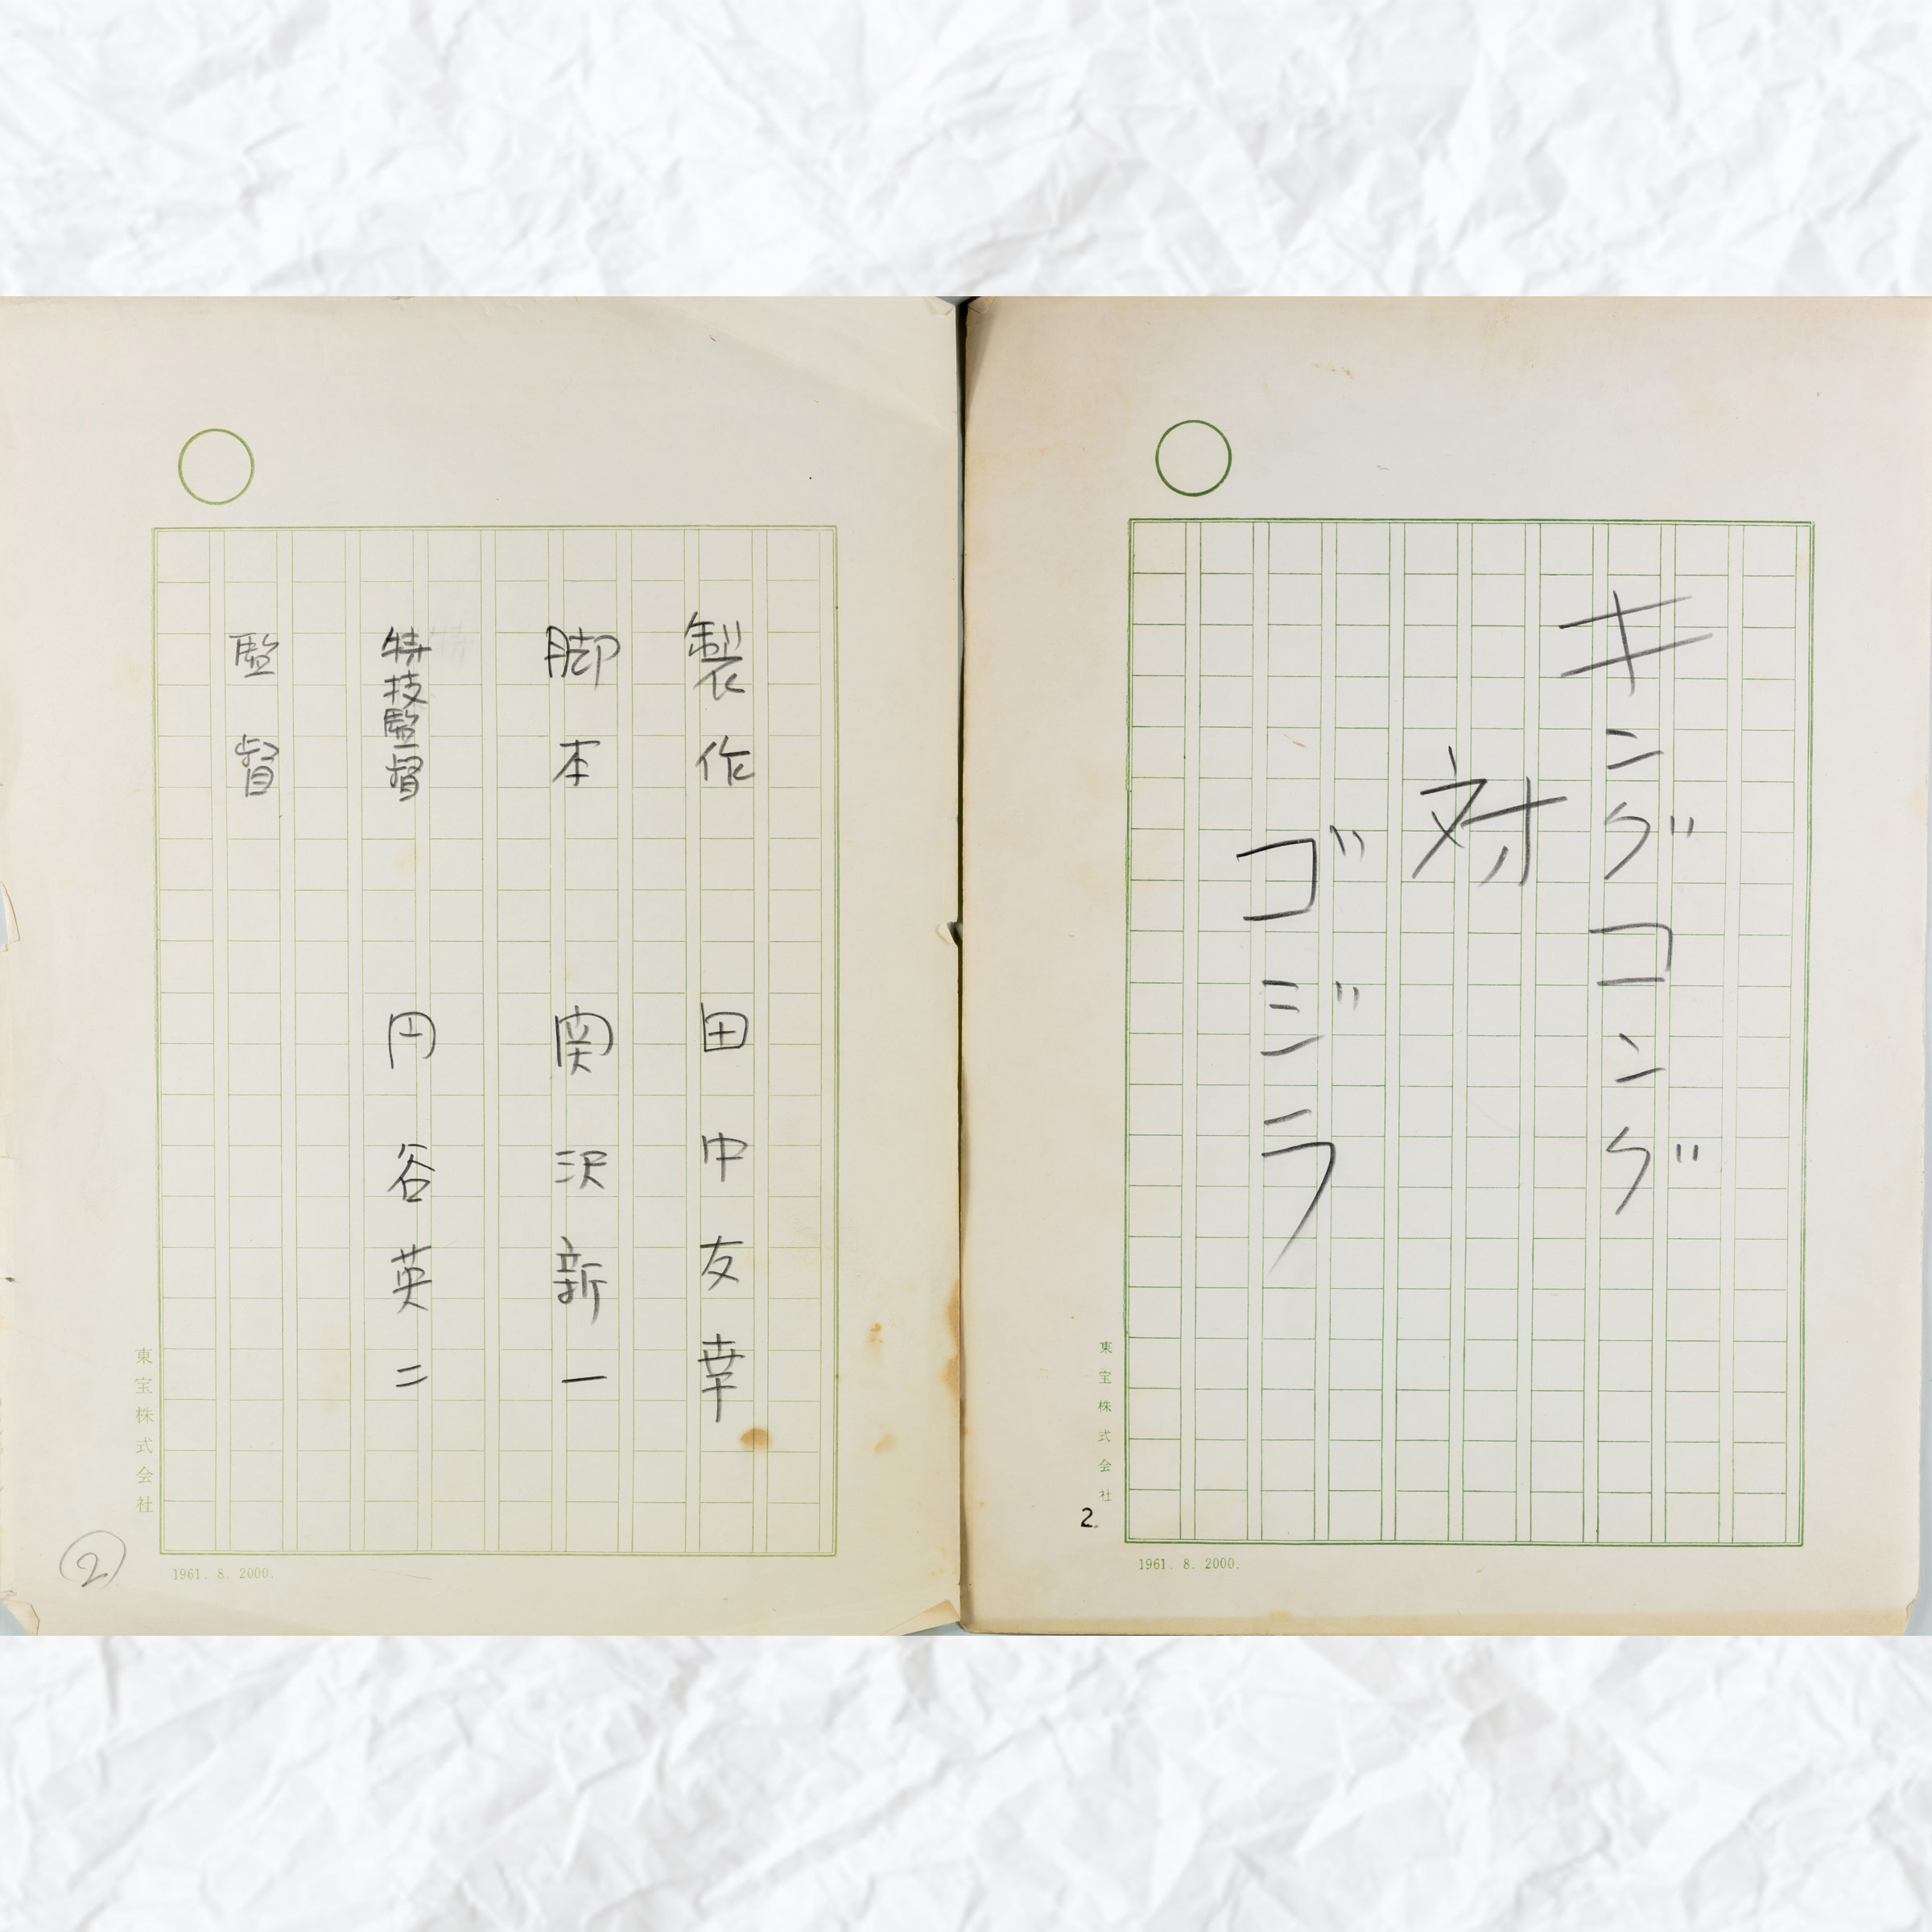 キングコング
対
ゴジラ
東宝株式会社
2
1961. 8. 2000.
製作 田中友幸
脚本 関沢新一
特技監督 円谷英二
監督
東宝株式会社
2
1961. 8. 2000.